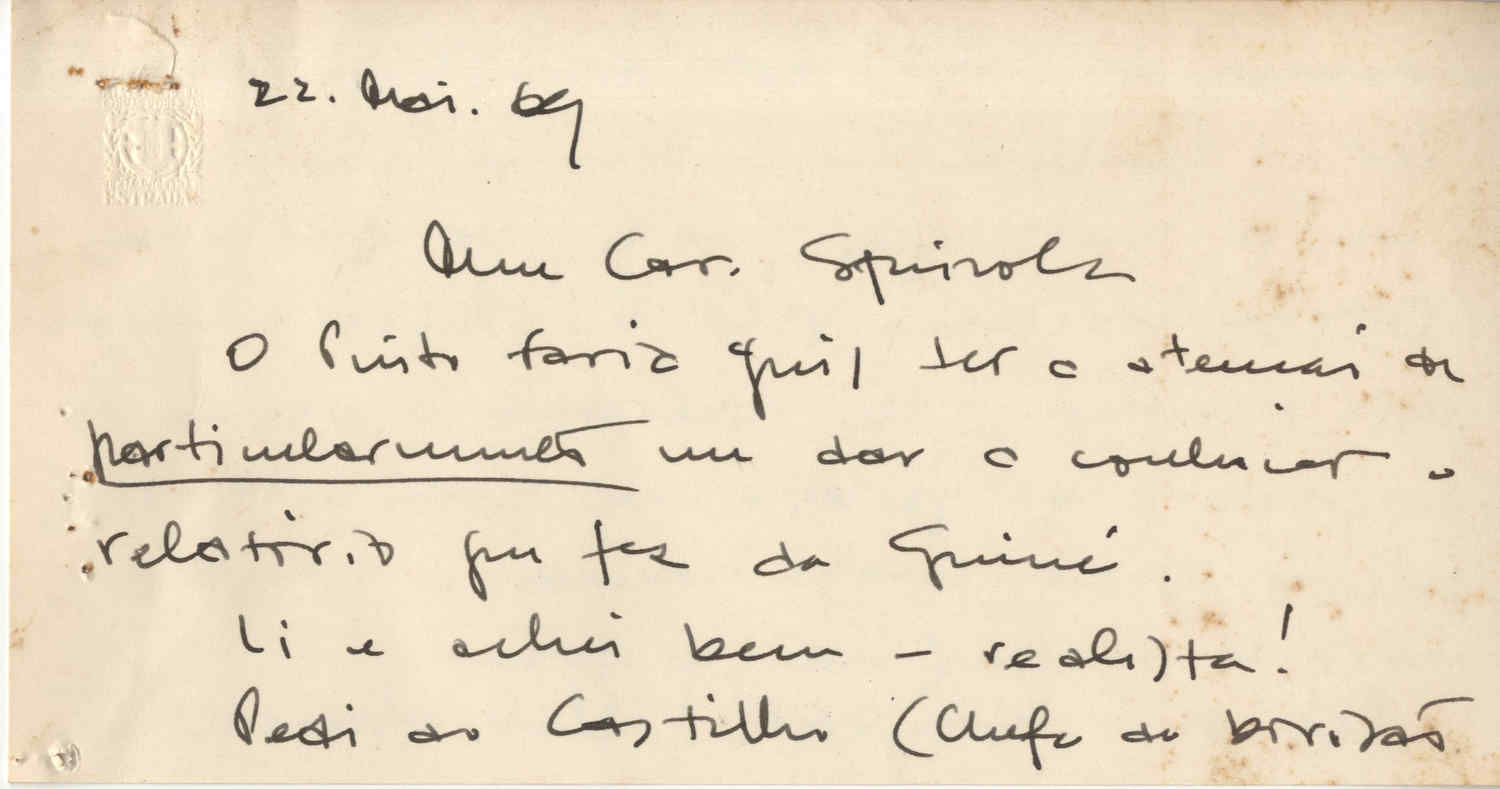 22. Mai. 69
Meu Car. Spinola
O Pinto Faria quis ter a atenção de
particularmente me dar a conhecer o
relatório que fez da Guiné.
Li e achei bem - realista!
Pedi ao Castilho (Chefe da Divisão
ESTRADA